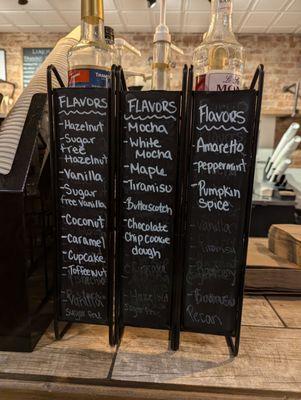 FLAVORS
-Hazelnut
Sugar
Free
Hazelnut
-Vanilla
-Sugar
Free Vanilla
-Coconut
-Caramel
-Cupcake
-Toffeenut
FLAVORS
-Mocha
-White
Mocha
-Maple
-Tiramisu
-Butterscotch
-Chocolate
Chip Cookie
dough
FLAVORS
-Amaretto
-Peppermint
-Pumpkin
Spice